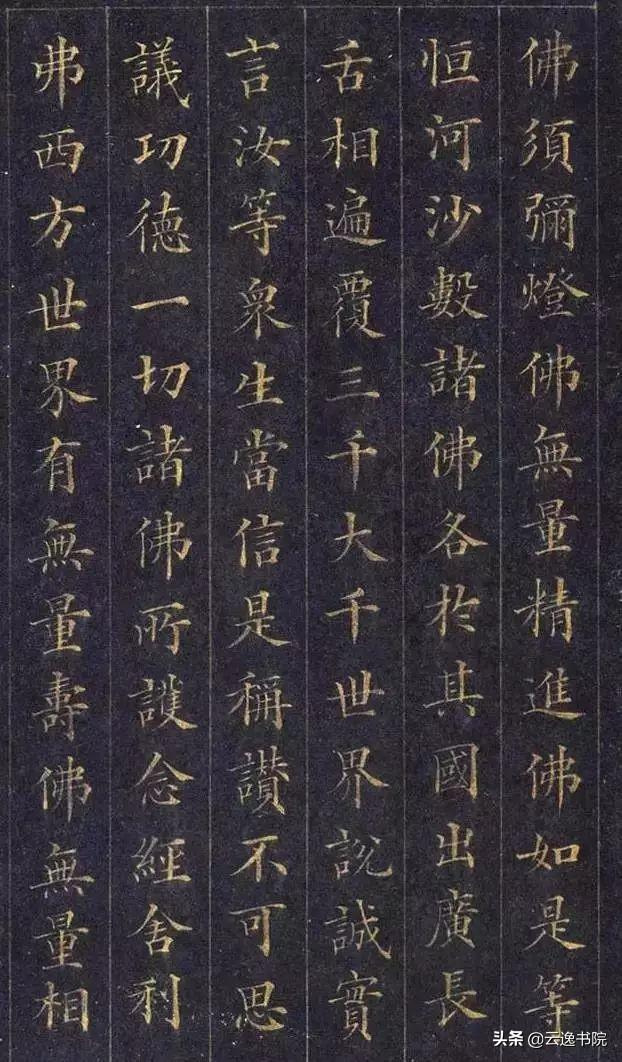 佛須彌燈佛無量精進佛如是等
恒河沙數諸佛各於其國出廣長
舌相遍覆三千大千世界說誠實
言汝等眾生當信是稱讚不可思
議功德一切諸佛所護念經舍利
弗西方世界有無量壽佛無量相
头条 @云逸书院